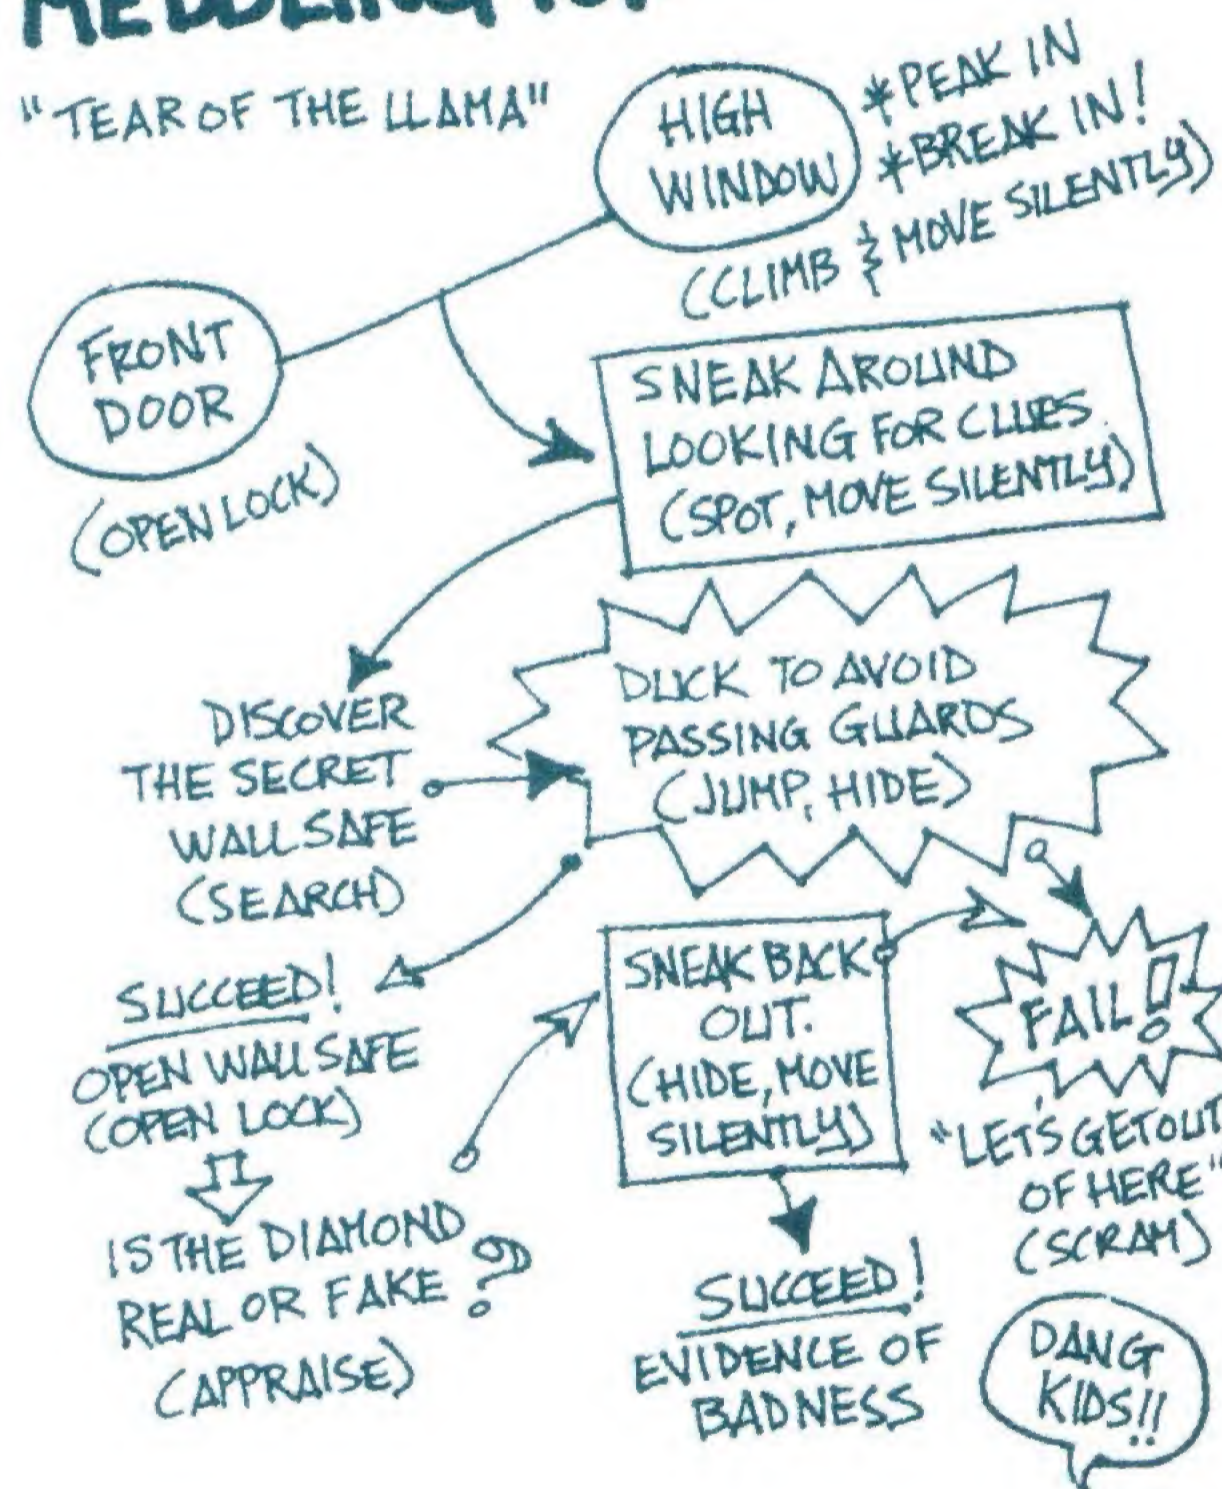 "TEAR OF THE LLAMA"
HIGH
WINDOW
*PEAK IN
*BREAK IN!
(CLIMB & MOVE SILENTLY)
FRONT
DOOR
(OPEN LOCK)
SNEAK AROUND
LOOKING FOR CLUES.
(SPOT, MOVE SILENTLY)
DISCOVER
THE SECRET
WALL SAFE
(SEARCH)
DUCK TO AVOID
PASSING GUARDS
(JUMP, HIDE)
SUCCEED!
OPEN WALL SAFE
(OPEN LOCK)
IS THE DIAMOND
REAL OR FAKE?
(APPRAISE)
SNEAK BACK
OUT.
(HIDE, MOVE
SILENTLY)
FAIL!
"LET'S GET OUT
OF HERE"
(SCRAM)
SUCCEED!
EVIDENCE OF
BADNESS
DANG
KIDS!!